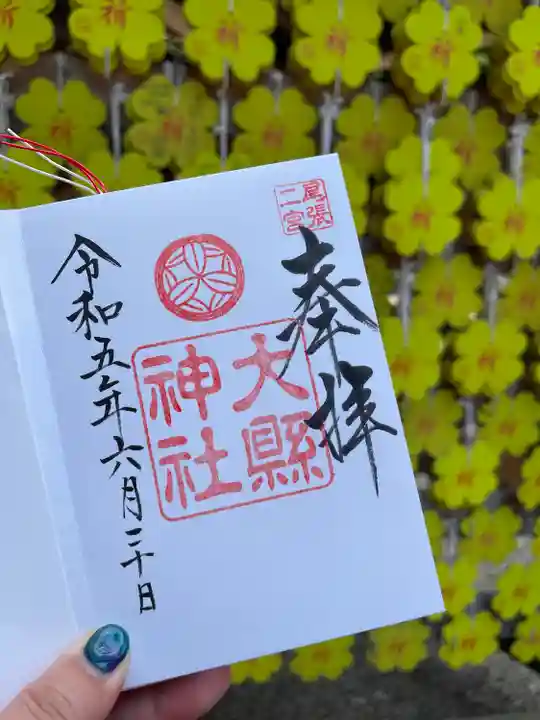 尾張
二宮
奉拝
大縣
神社
令和五年六月三十日